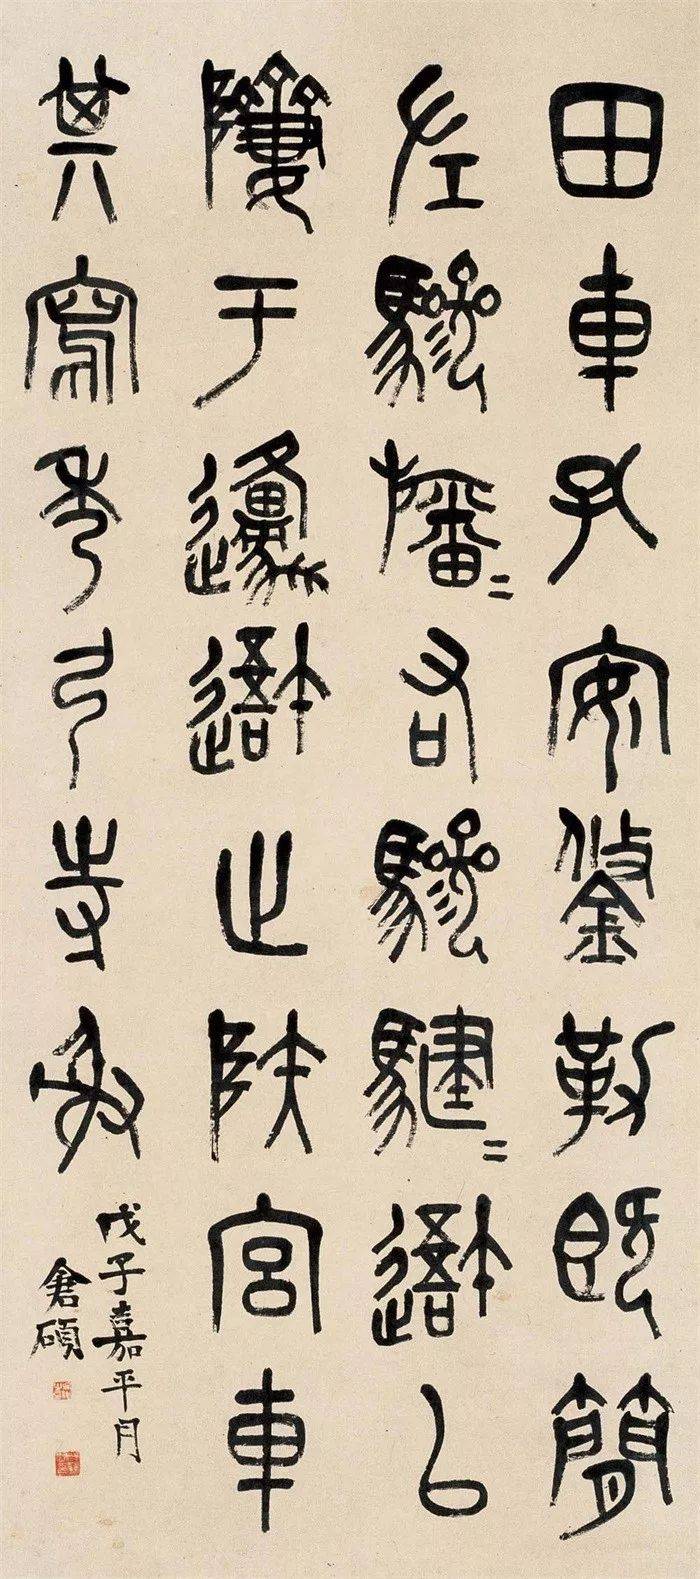 田車孔安鋚勒既簡
左驂旛〻右驂騝〻䢩以
隮于邍䢩止陕宮車
其寫秀弓寺射
戊子嘉平月
倉碩